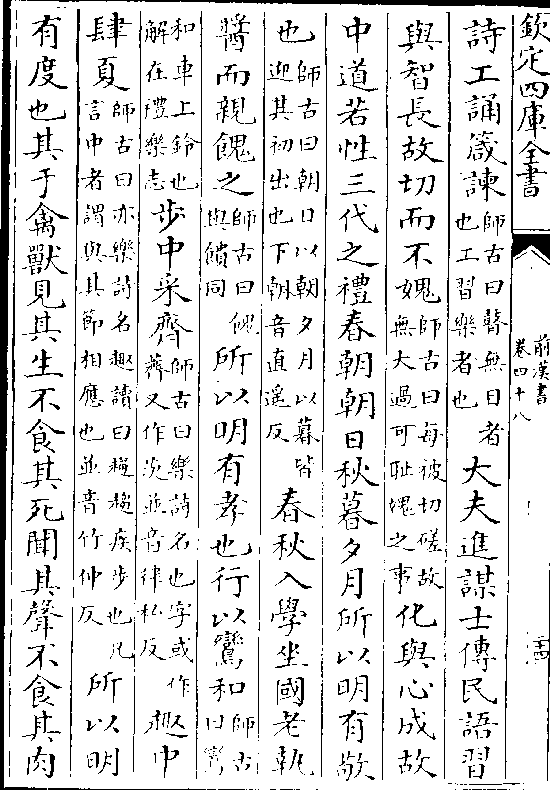 欽定四庫全書
前漢書
卷四十八
詩工誦箴諫師古曰瞽無目者也工習樂者也大夫進謀士傳民語習
與智長故切而不媿師古曰每被切磋故無大過可恥媿之事化與心成故
中道若性三代之禮春朝朝日秋暮夕月所以明有敬
也師古曰朝日以朝夕月以暮皆迎其初出也下朝音直遥反春秋入學坐國老執
醬而親餽之師古曰餽與饋同所以明有孝也行以鸞和師古曰鸞
和車上鈴也解在禮樂志步中采齊師古曰樂詩名也字或作薺又作茨並音律私反趣中
肆夏師古曰亦樂詩名趣讀曰趨趨疾步也凡言中者謂與其節相應也並音竹仲反所以明
有度也其于禽獸見其生不食其死聞其聲不食其肉